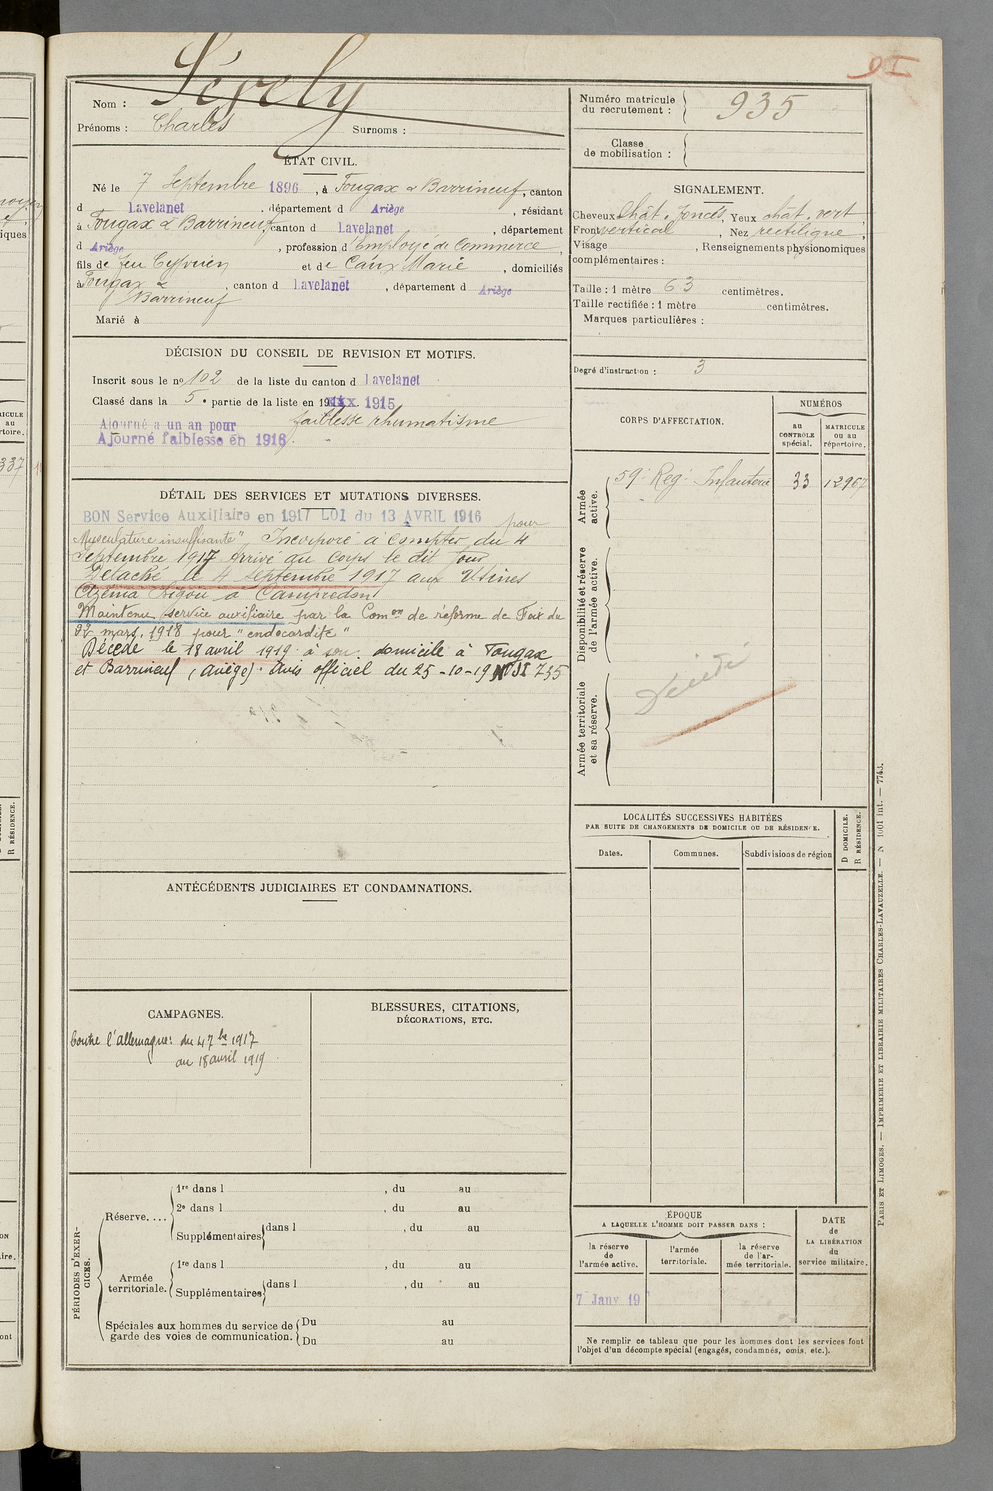 91
Nom : Sévely
Prénoms : Charles Surnoms :
ÉTAT CIVIL.
Né le 7 Septembre 1896, à Fougax & Barrineuf, canton
d Lavelanet, département d Ariège, résidant
à Fougax & Barrineuf canton d Lavelanet, département
d Ariège, profession d'Employé de Commerce
fils de feu Cyprien et de Caux Marie, domiciliés
à Fougax &
Barrineuf, canton d Lavelanet, département d Ariège
Marié à
DÉCISION DU CONSEIL DE REVISION ET MOTIFS.
Inscrit sous le no 102 de la liste du canton d Lavelanet
Classé dans la 5e partie de la liste en 1915.
Ajourné à un an pour faiblesse rhumatisme
Ajourné faiblesse en 1916
DÉTAIL DES SERVICES ET MUTATIONS DIVERSES.
BON Service Auxiliaire en 1917 LOI du 13 AVRIL 1916 pour
Musculature insuffisante" Incorporé à compter du 4
Septembre 1917 Arrivé au corps le dit jour
Détaché le 4 septembre 1917 aux Usines
à Campredon
Maintenu service auxiliaire par la Comon de réforme de Foix du
22 mars 1918 pour "endocardite"
Décédé le 18 avril 1919 à son domicile à Fougax
et Barrineuf (Ariège). Avis officiel du 25-10-19 735
ANTÉCÉDENTS JUDICIAIRES ET CONDAMNATIONS.
CAMPAGNES.
Contre l'allemagne: du 4 7bre 1917
au 18 avril 1919
BLESSURES, CITATIONS,
DÉCORATIONS, ETC.
PÉRIODES D'EXERCICES.
Réserve....
1re dans l , du au
2e dans l , du au
Supplémentaires dans l , du au
Armée
territoriale.
1re dans l , du au
Supplémentaires dans l , du au
Spéciales aux hommes du service de
garde des voies de communication.
Du au
Du au
Numéro matricule
du recrutement : 935
Classe
de mobilisation :
SIGNALEMENT.
Cheveux chât. foncés, Yeux chât. vert
Front vertical, Nez rectiligne,
Visage , Renseignements physionomiques
complémentaires :
Taille : 1 mètre 63 centimètres.
Taille rectifiée : 1 mètre centimètres.
Marques particulières :
Degré d'instruction : 3
CORPS D'AFFECTATION.
NUMÉROS
au
CONTROLE
spécial.
MATRICULE
ou au
répertoire.
Armée
active.
59e Reg. Infanterie 33 12967
Disponibilité et réserve
de l'armée active.
Armée territoriale
et sa réserve.
Décédé
LOCALITÉS SUCCESSIVES HABITÉES
PAR SUITE DE CHANGEMENTS DE DOMICILE OU DE RÉSIDENCE.
Dates.
Communes.
Subdivisions de région
D DOMICILE.
R RÉSIDENCE.
ÉPOQUE
A LAQUELLE L'HOMME DOIT PASSER DANS :
la réserve
de
l'armée active.
l'armée
territoriale.
la réserve
de l'ar-
mée territoriale.
DATE
de
LA LIBÉRATION
du
service militaire.
7 Janv 19
Ne remplir ce tableau que pour les hommes dont les services font
l'objet d'un décompte spécial (engagés, condamnés, omis, etc.).
PARIS ET LIMOGES. — IMPRIMERIE ET LIBRAIRIE MILITAIRES CHARLES-LAVAUZELLE. — N 1001 int. — 7743.